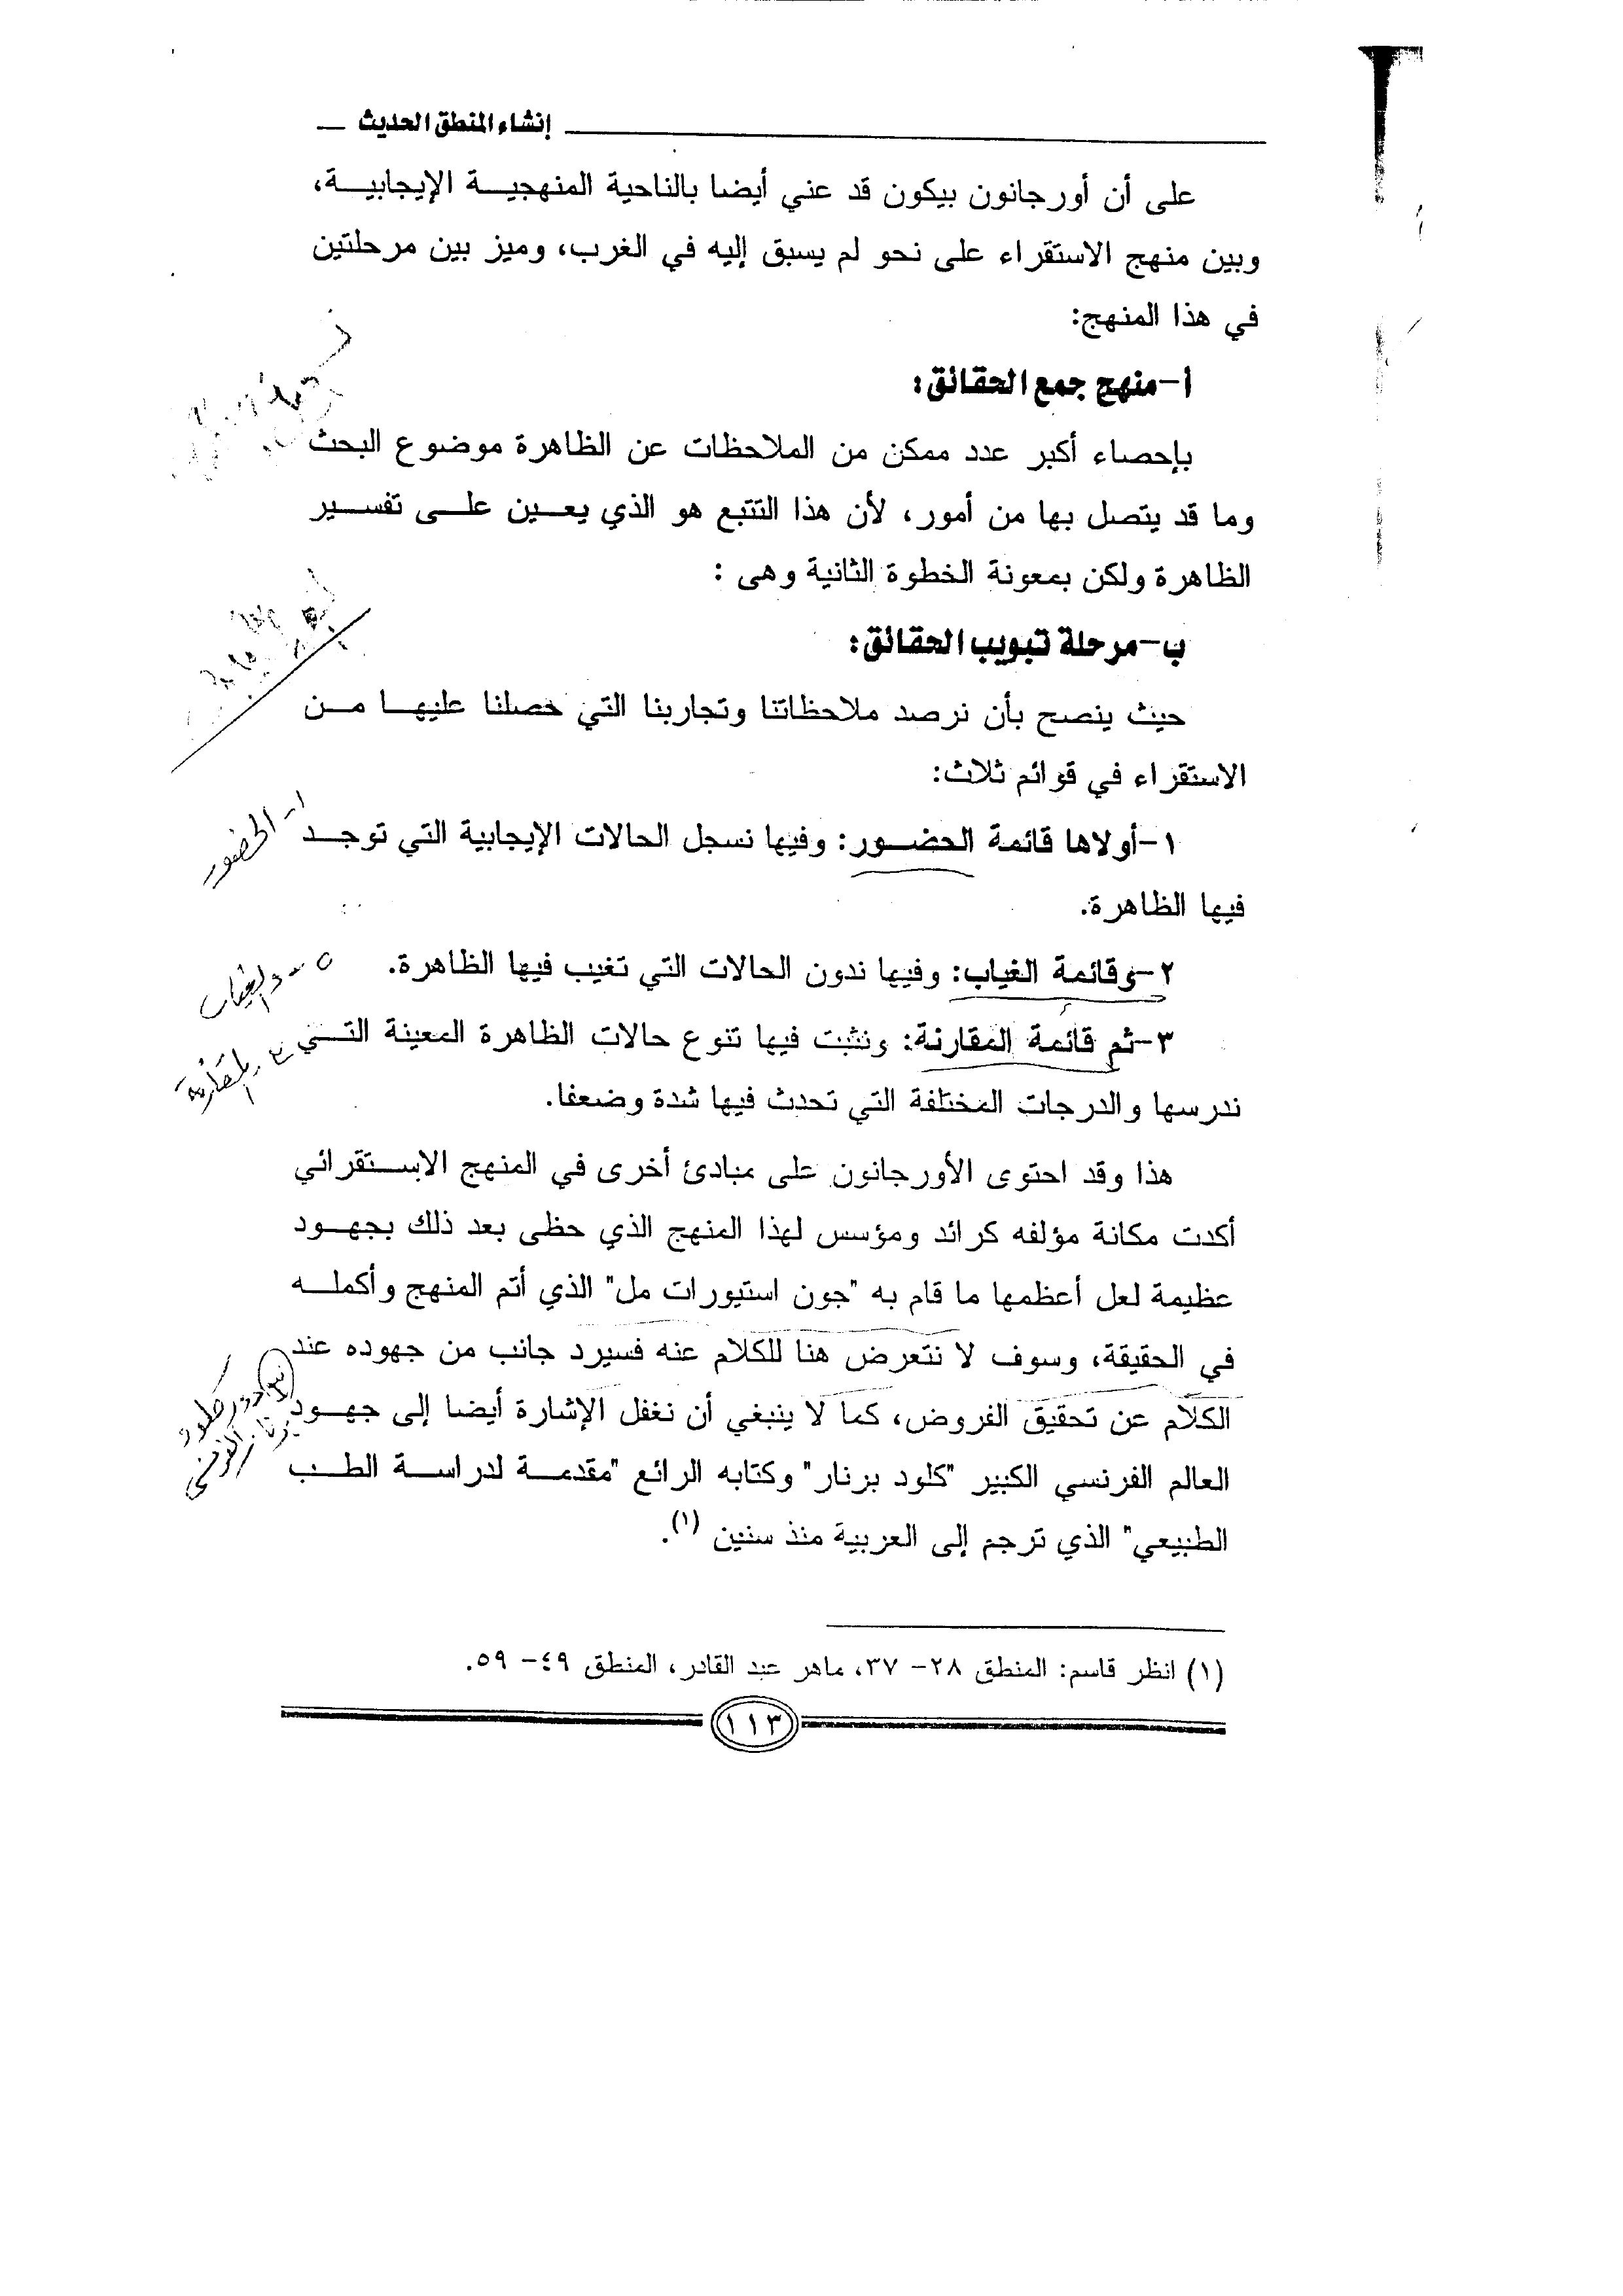 إنشاء المنطق الحديث
على أن أورجانون بيكون قد عني أيضا بالناحية المنهجية الإيجابية،
وبين منهج الاستقراء على نحو لم يسبق إليه في الغرب، وميز بين مرحلتين
في هذا المنهج:
أ-منهج جمع الحقائق:
بإحصاء أكبر عدد ممكن من الملاحظات عن الظاهرة موضوع البحث
وما قد يتصل بها من أمور، لأن هذا التتبع هو الذي يعين على تفسير
الظاهرة ولكن بمعونة الخطوة الثانية وهى :
ب-مرحلة تبويب الحقائق:
حيث ينصح بأن نرصد ملاحظاتنا وتجاربنا التي حصلنا عليها من
الاستقراء في قوائم ثلاث:
١-أولاها قائمة الحضور: وفيها نسجل الحالات الإيجابية التي توجد
١- الحضور
فيها الظاهرة.
٢-وقائمة الغياب: وفيها ندون الحالات التي تغيب فيها الظاهرة.
٢- والغياب
٣-ثم قائمة المقارنة: ونثبت فيها تنوع حالات الظاهرة المعينة التي
٣- المقارنة
ندرسها والدرجات المختلفة التي تحدث فيها شدة وضعفا.
هذا وقد احتوى الأورجانون على مبادئ أخرى في المنهج الاستقرائي
أكدت مكانة مؤلفه كرائد ومؤسس لهذا المنهج الذي حظى بعد ذلك بجهود
عظيمة لعل أعظمها ما قام به "جون استيورات مل" الذي أتم المنهج وأكمله
في الحقيقة، وسوف لا نتعرض هنا للكلام عنه فسيرد جانب من جهوده عند
الكلام عن تحقيق الفروض، كما لا ينبغي أن نغفل الإشارة أيضا إلى جهود
٣ دور كلود
برنار الفرنسي
العالم الفرنسي الكبير "كلود برنار" وكتابه الرائع "مقدمة لدراسة الطب
الطبيعي" الذي ترجم إلى العربية منذ سنين (١).
(١) انظر قاسم: المنطق ٢٨- ٣٧، ماهر عبد القادر، المنطق ٤٩- ٥٩.
١١٣